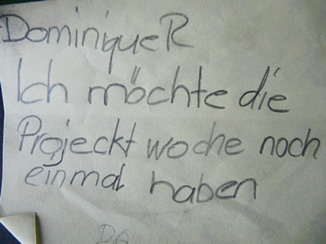 Dominique R
Ich möchte die
Projeckt woche noch
einmal haben